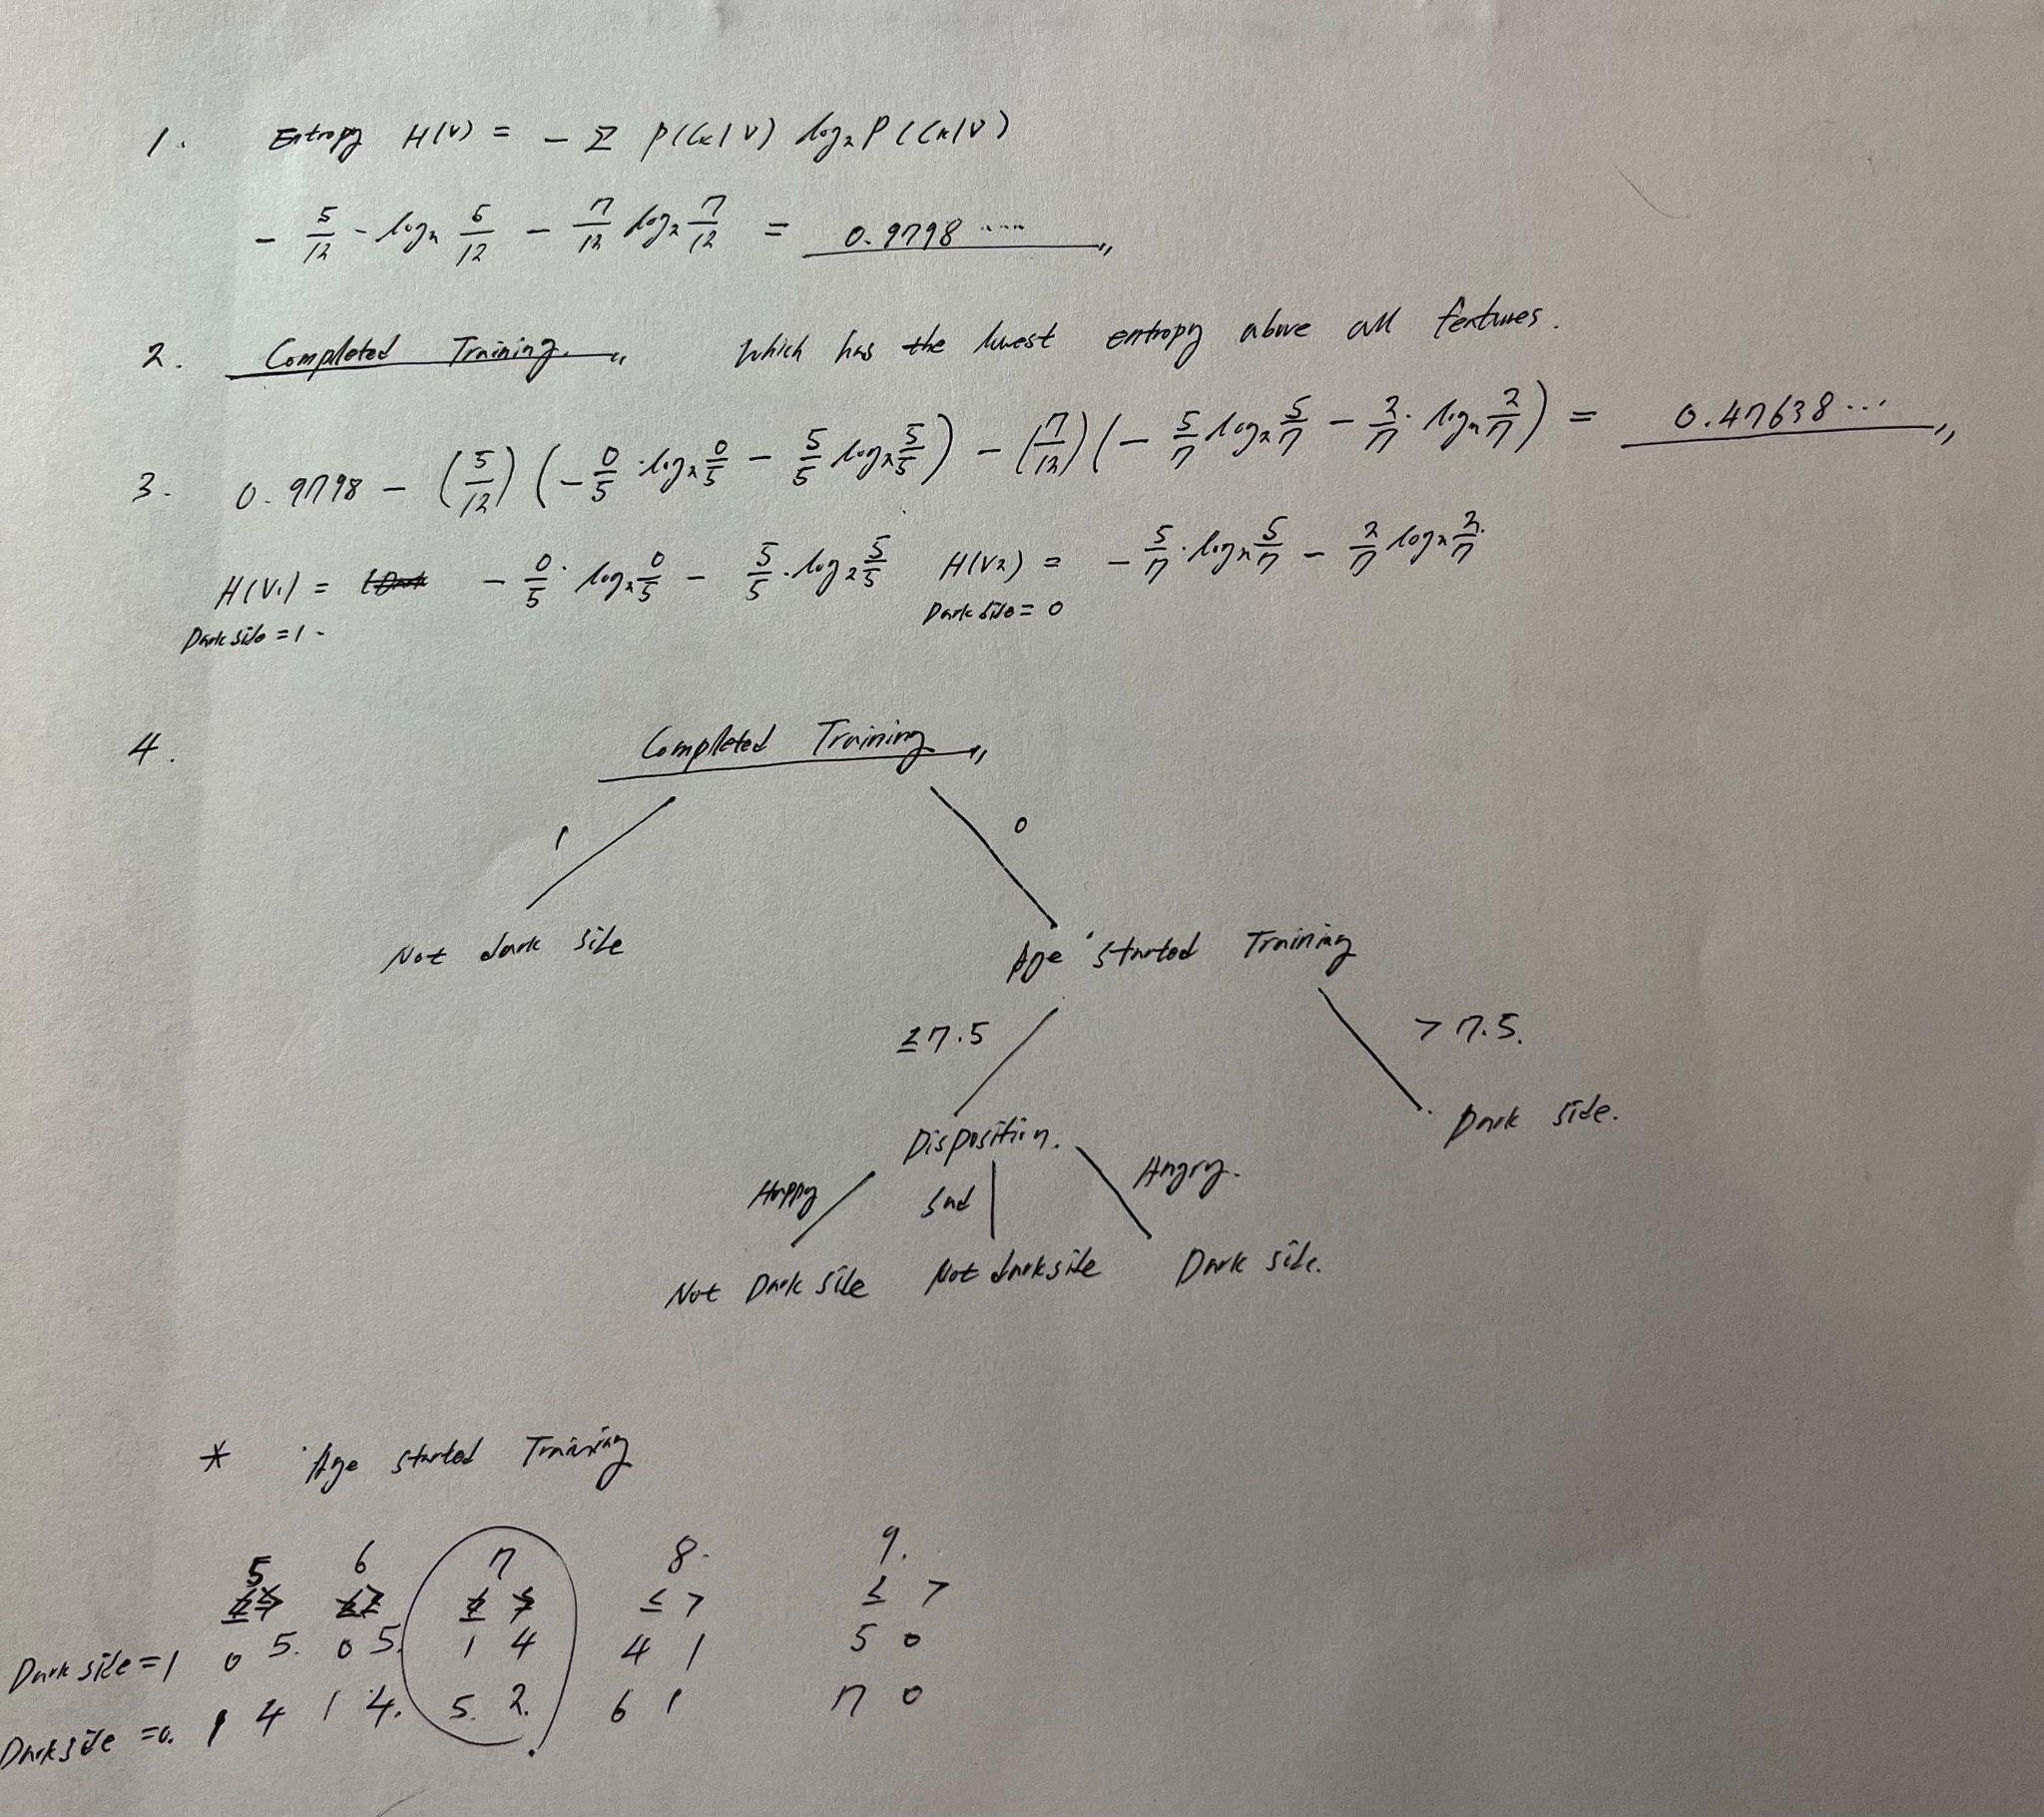 1. Entropy H(V) = - Σ P(Ck|V) log2 P(Ck|V)
- 5/12 - log2 5/12 - 7/12 log2 7/12 = 0.9798 ....
2. Completed Training. Which has the lowest entropy above all features.
3. 0.9798 - (5/12) (- 0/5 · log2 0/5 - 5/5 log2 5/5) - (7/12) (- 5/7 log2 5/7 - 2/7 · log2 2/7) = 0.47638...
H(V1) = - 0/5 · log2 0/5 - 5/5 · log2 5/5 H(V2) = - 5/7 · log2 5/7 - 2/7 log2 2/7
Dark side = 1 Dark side = 0
4. Completed Training
1 0
Not dark side Age started Training
≤ 7.5 > 7.5.
Disposition. Dark side.
Happy Sad Angry.
Not Dark side Not dark side Dark side.
* Age started Training
5 6 7 8. 9.
≤ > ≤ > ≤ > ≤ > ≤ >
Dark side = 1 0 5. 0 5. 1 4 4 1 5 0
Dark side = 0. 1 4 1 4. 5. 2. 6 1 7 0